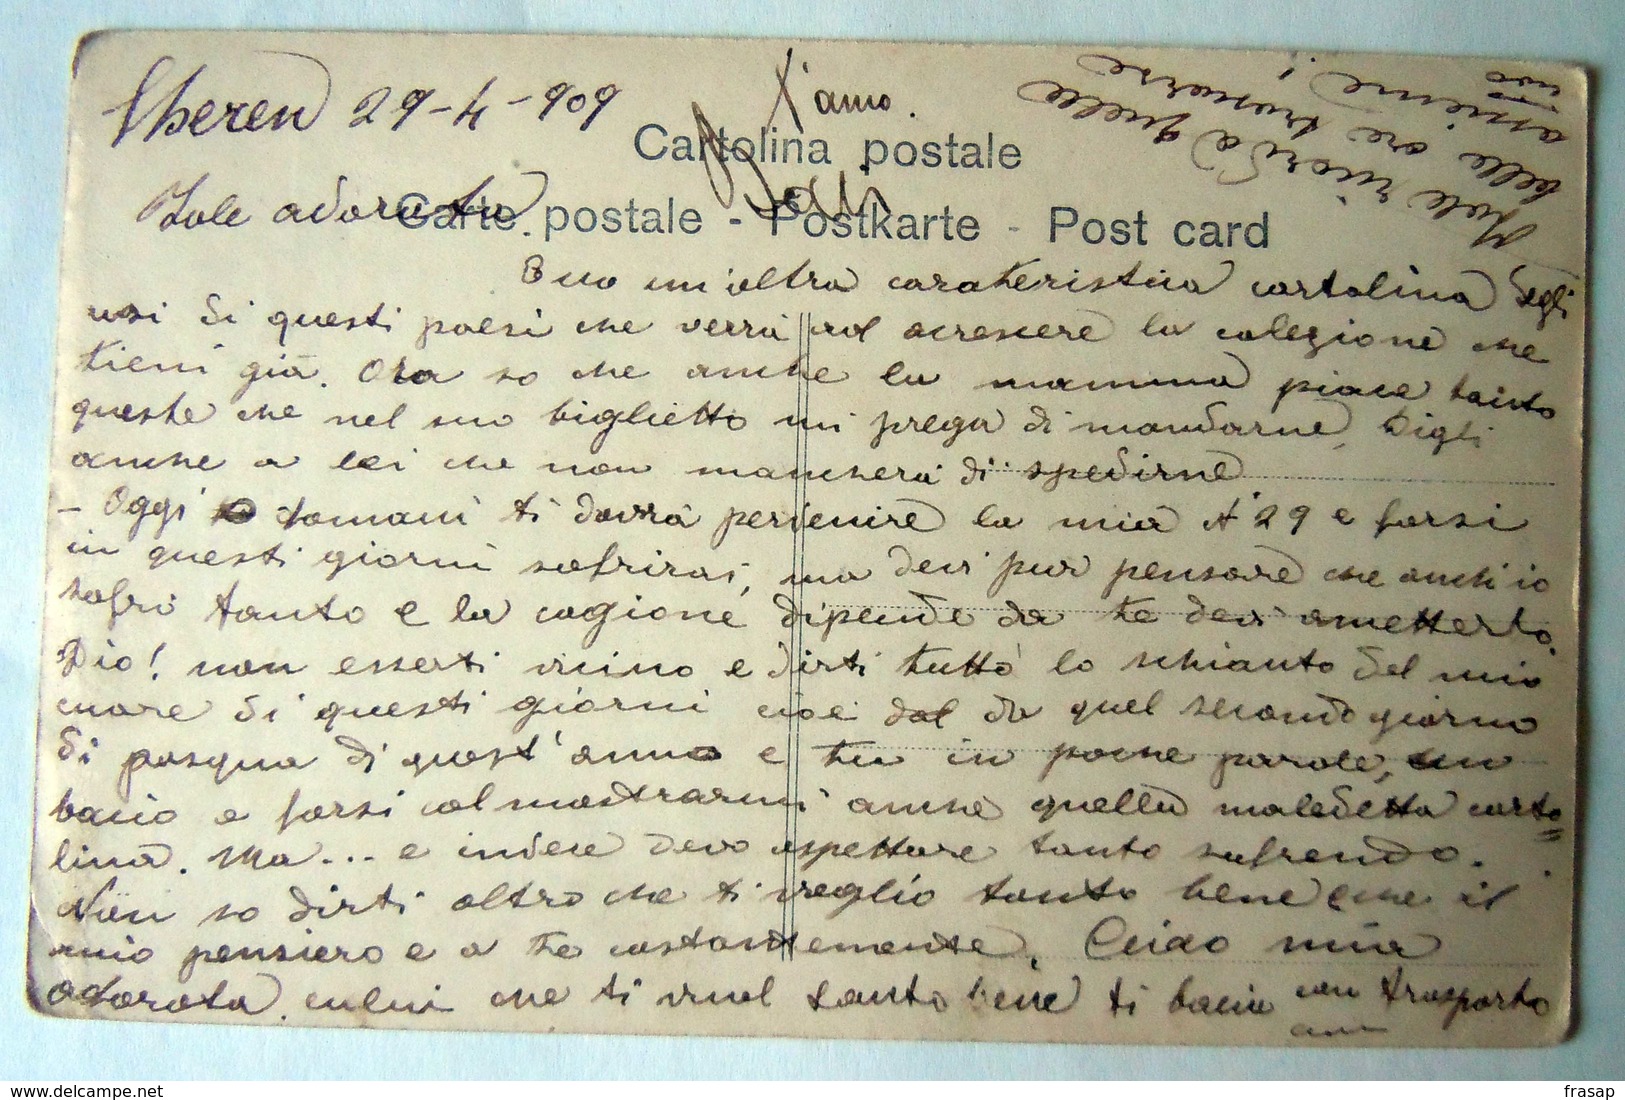 Cheren 29-4-909
T'amo.
Baci
Jole ricorda quelle
belle ore trascorse
assieme!
Cartolina postale
Carte postale - Postkarte - Post card
Jole adorata.
Eno un'oltra carateristica cartolina degli
usi di questi paesi che verrà ad acrescere la colezione che
tieni già. Ora so che anche la mamma piace tanto
queste che nel suo biglietto mi prega di mandarne. Digli
anche a lei che non mancherà di spedirne
- Oggi o domani ti dovrà pervenire la mia N° 29 e forsi
in questi giorni sofrirai, ma devi pur pensare che anch'io
sofri tanto e la cagione dipende da te devi ametterlo.
Dio! non esserti vicino e dirti tutto lo schianto del mio
cuore di questi giorni cioè dal da quel secondo giorno
di pasqua di quest'anno e tu in poche parole, un
bacio e forsi col mostrarmi anche quella maledetta carto=
lina. Ma... e invece devo aspettare tanto sofrendo.
Non so dirti altro che ti voglio tanto bene e che il
mio pensiero e a te costantemente. Ciao mia
adorata. colui che ti vuol tanto bene ti bacia con trasporto
frasap